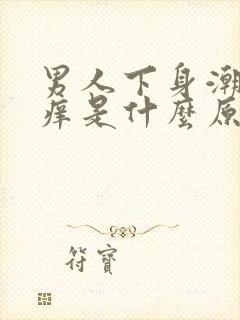 男人下身潮
痒是什麼原
符寶